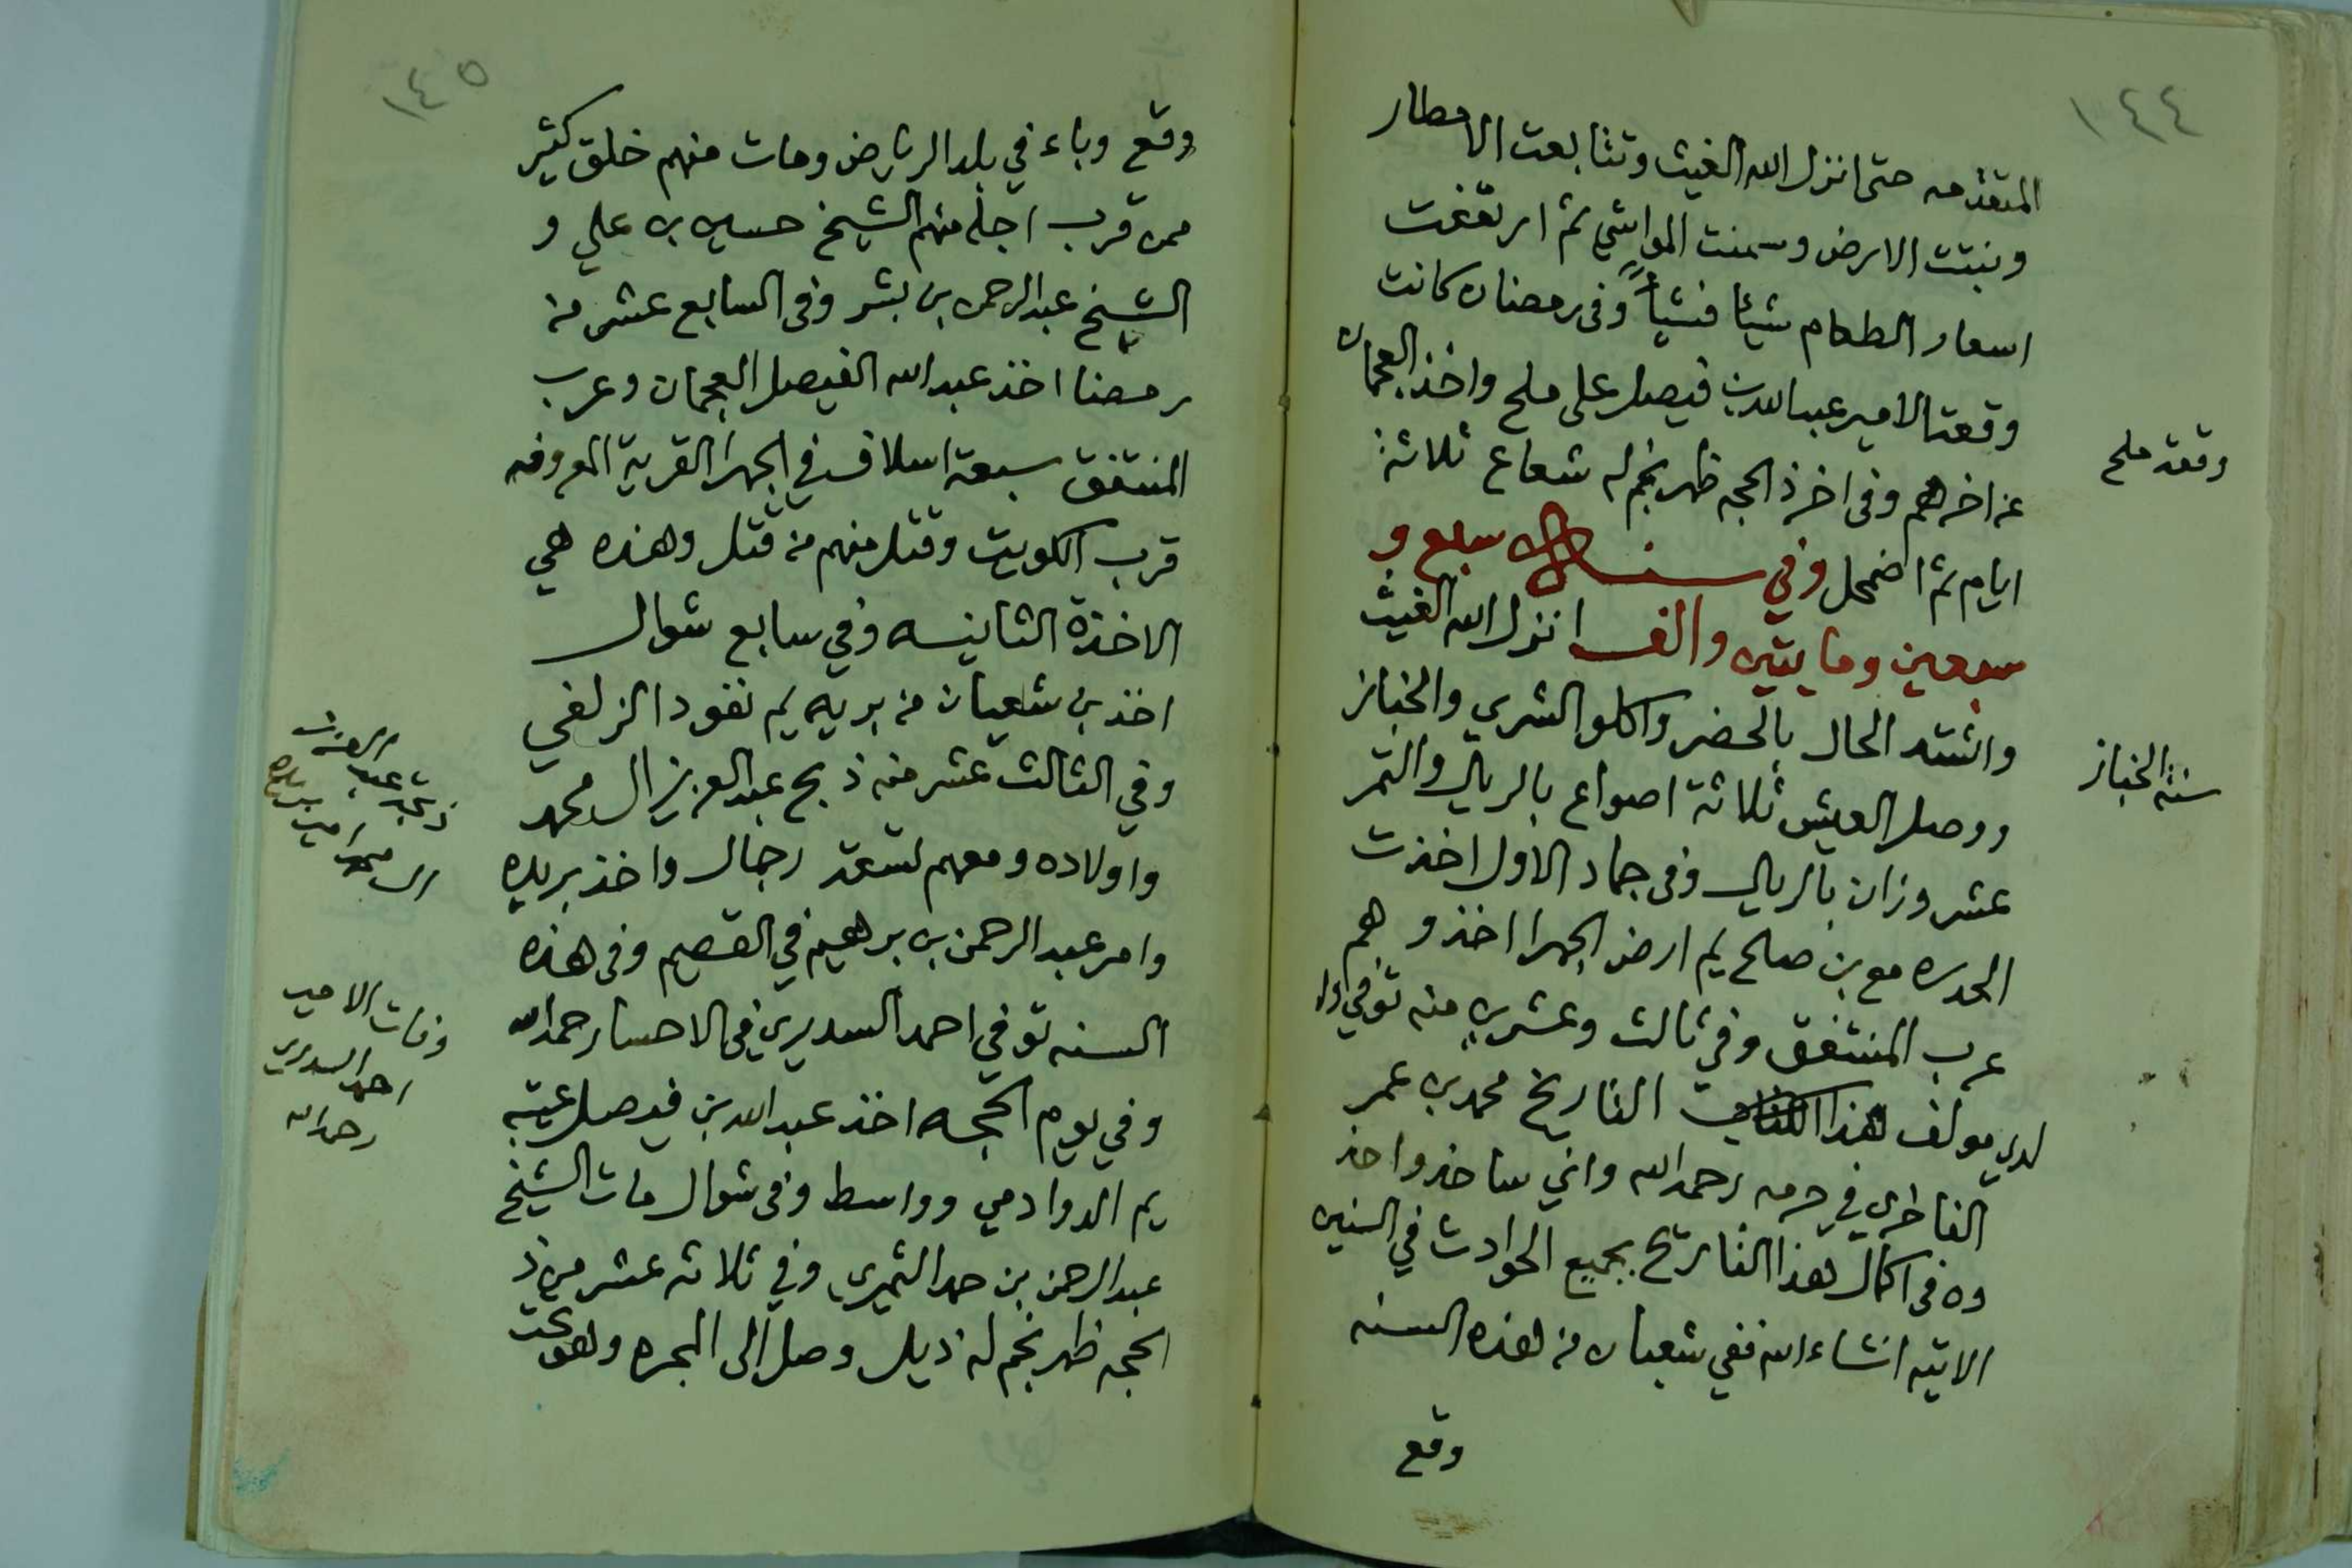 ١٤٤
المتقدمه حتى انزل الله الغيث وتتابعت الامطار
ونبتت الارض وسمنت المواشي ثم ارتفعت
اسعار الطعام شيئا فشيأً وفى رمضان كانت
وقعت الامير عبدالله بن فيصل على ملح واخذ العجمان
عن اخرهم وفى اخر ذ الحجه ظهر نجم له شعاع ثلاثة
ايام ثم اضمحل وفي سنة سبع و
سبعين ومايتين والف انزل الله الغيث
واشتد الحال بالحضر واكلو الشري والخباز
ووصل العيش ثلاثة اصواع بالريال والتمر
عشر وزان بالريال وفى جماد الاول اخذت
الحدره مع بن صلح يم ارض الجهرا اخذوهم
عرب المنتفق وفي ثالث وعشرين منه توفي الوا
لدي مولف هذا التاريخ محمد بن عمر
الفاخري في حرمه رحمه الله واني ساخذ واخذ
وه فى اكمال هذا التاريخ بجميع الحوادث في السنين
الاتيه انشاء الله ففي شعبان من هذه السنه
وقع
وقعة ملح
سنة الخباز
١٤٥
وقع وباء في بلد الرياض ومات منهم خلق كثير
ممن قرب اجله منهم الشيخ حسين بن علي و
الشيخ عبدالرحمن بن بشر وفى السابع عشر من
رمضنا اخذ عبد الله الفيصل العجمان وعرب
المنتفق سبعة اسلاف في الجهرا القرية المعروفه
قرب الكويت وقتل منهم من قتل وهذه هي
الاخذة الثانيه وفي سابع شوال
اخذ بن شعبان من بريه يم نفود الزلفي
وفي الثالث عشر منه ذبح عبد العزيز ال محمد
واولاده ومعهم تسعة رجال واخذ بريده
وامر عبد الرحمن بن برهيم في القصيم وفى هذه
السنه توفي احمد السديري في الاحسا رحمه الله
وفي يوم الحجه اخذ عبد الله بن فيصل عتيبه
يم الدوادمي وواسط وفى شوال مات الشيخ
عبد الرحمن بن حمد الثميري وفي ثلاثه عشر من ذ
الحجه ظهر نجم له ذيل وصل الى المجره وهو تحت
ذبحة عبد العزيز
ال محمد امير بريده
وفات الامير
احمد السديري
رحمه الله